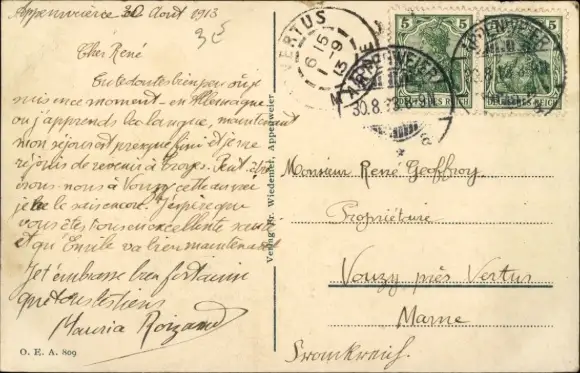 Appenweier 30 Août 1913
Cher René
Tu te doutes bien peu où je
suis en ce moment - en Allemagne
où j'apprends la langue, maintenant
mon séjour est presque fini et je me
réjouis de revenir à Troyes. Peut être
irons-nous à Vouzy cette année
je ne le sais encore. J'espère que
vous êtes tous en excellente santé
et qu' va bien maintenant
Je t'embrasse bien fort ainsi
que tous les tiens
Maurice
O. E. A. 809
Verlag Fr. Wiedemer, Appenweier
VERTUS
6-15
5-9
13
5 5
DEUTSCHES REICH
APPENWEIER
30.8.13.8-9
Monsieur René Geoffroy
Propriétaire
Vouzy près Vertus
Marne
Frankreich.